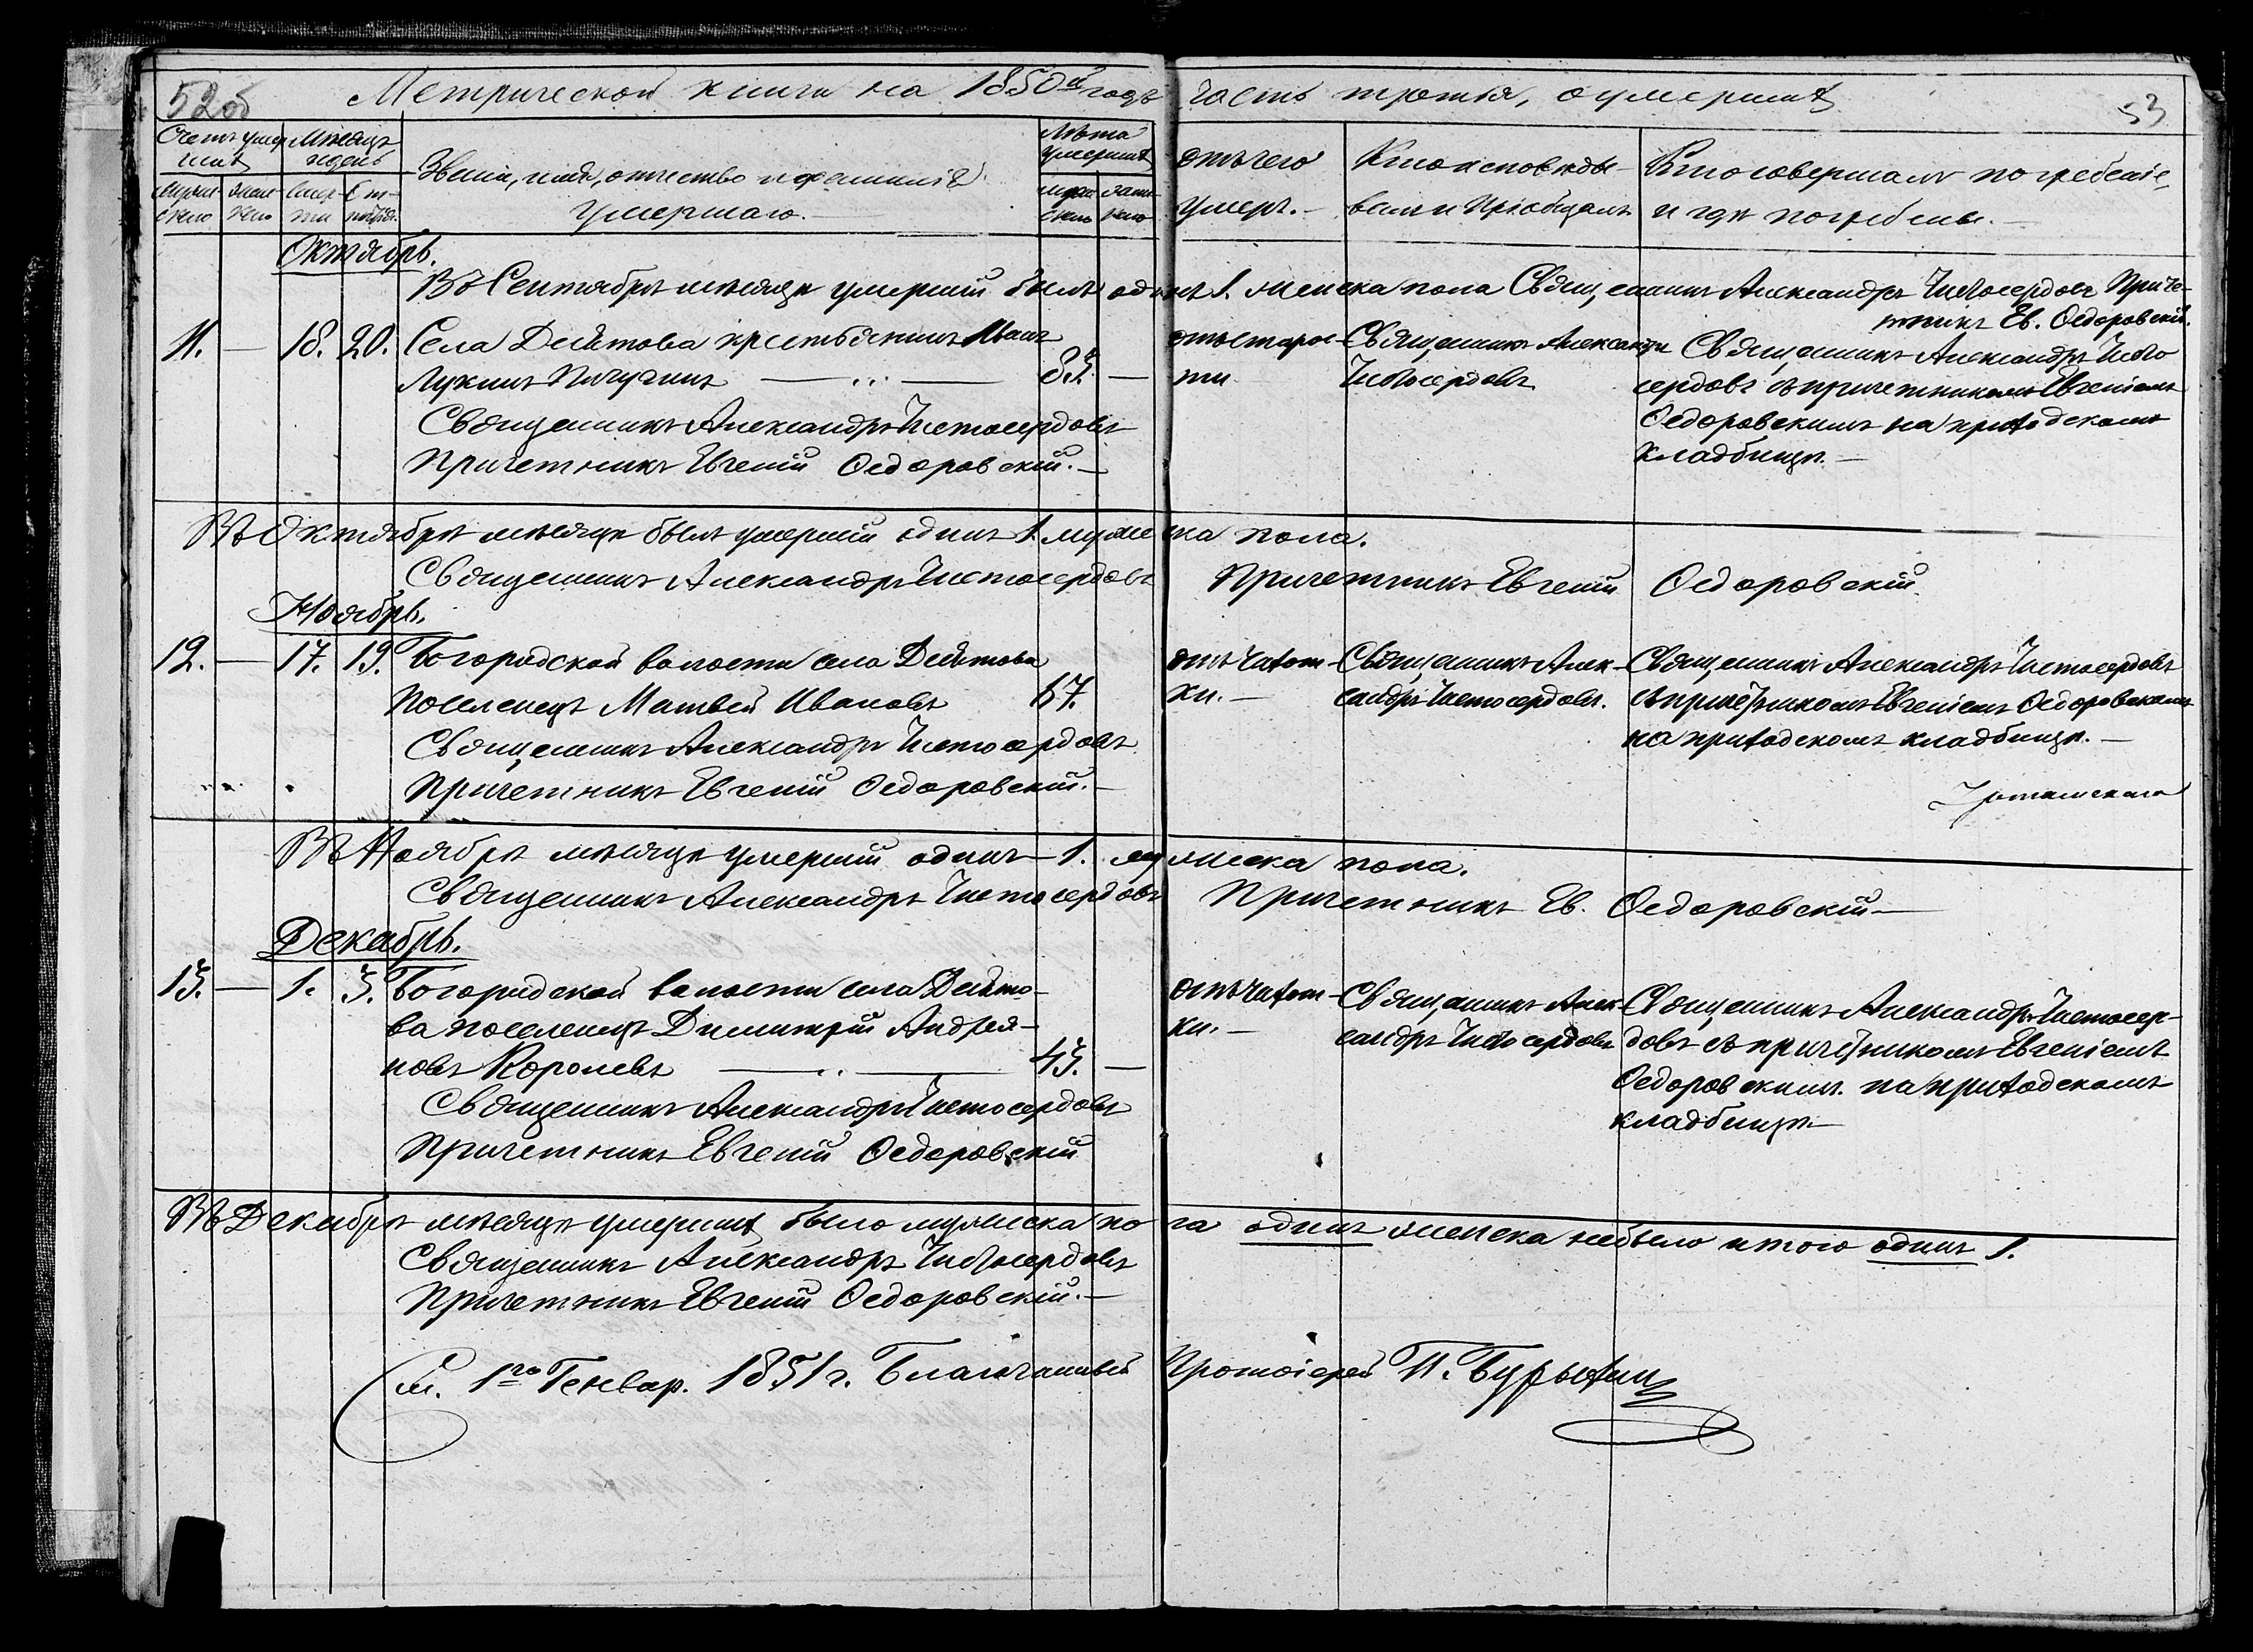 52об
Метрической книги на 1850й годъ часть третья, о умершихъ
53
Счетъ умер
шихъ
Месяцъ
и день
Званіе, имя, отчество и фамилія
умершаго.
Лѣта
умершихъ
отъ чего
умеръ.
Кто исповѣды-
валъ и пріобщалъ
Кто совершалъ погребеніе,
и гдѣ погребены.
муже
ска
жен
ска
смер
ти
муже
ска
жен
ска
Октябрь.
Въ Сентябрѣ месяцѣ умершій былъ одинъ 1. женска пола Священникъ Александръ Чистосердовъ Приче-
тникъ Ев. Ѳедоровскій.
11. — 18. 20. Села Дейтова крестьянинъ Иванъ
Лукинъ 83. —
отъ старос-
ти
Священникъ Александръ
Чистосердовъ
Священникъ Александръ Чисто
сердовъ съ причетникомъ Евгеніемъ
Ѳедоровскимъ на приходскомъ
кладбищѣ. —
Священникъ Александръ Чистосердовъ
Причетникъ Евгеній Ѳедоровскій. —
Въ Октябрѣ месяцѣ былъ умершій одинъ 1. мужеска пола.
Священникъ Александръ Чистосердовъ Причетникъ Евгеній Ѳедоровскій.
Ноябрь.
12. — 17. 19. Богородской волости села Дейтова
поселенецъ Матвей Ивановъ 67.
отъ чахот-
ки. —
Священникъ Алек-
сандръ Чистосердовъ.
Священникъ Александръ Чистосердовъ
съ причетникомъ Евгеніемъ Ѳедоровскимъ
на приходскомъ кладбищѣ. —
Священникъ Александръ Чистосердовъ
Причетникъ Евгеній Ѳедоровскій. —
Въ Ноябрѣ месяцѣ умершій одинъ — 1. мужеска пола.
Священникъ Александръ Чистосердовъ Причетникъ Ев. Ѳедоровскій —
Декабрь.
13. — 1. 3. Богородской волости села Дейто-
ва поселенецъ Димитрій Андрея-
новъ Королевъ 43. —
отъ чахот-
ки. —
Священникъ Алек-
сандръ Чистосердовъ
Священникъ Александръ Чистосер-
довъ съ причетникомъ Евгеніемъ
Ѳедоровскимъ. на приходскомъ
кладбищѣ. —
Священникъ Александръ Чистосердовъ
Причетникъ Евгеній Ѳедоровскій
Въ Декабрѣ месяцѣ умершихъ было мужеска пола одинъ женска небыло итого одинъ 1.
Священникъ Александръ Чистосердовъ
Причетникъ Евгеній Ѳедоровскій. —
1го Генвар. 1851 г. Благочинный Протоіерей П.